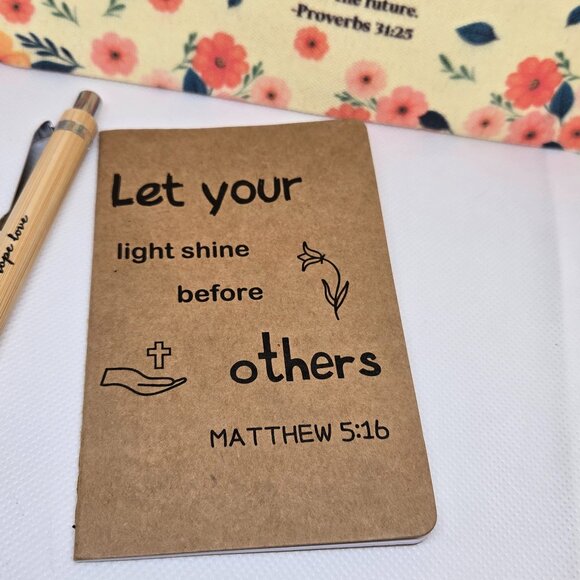 the future.
-Proverbs 31:25
Let your
light shine
before
others
MATTHEW 5:16
love